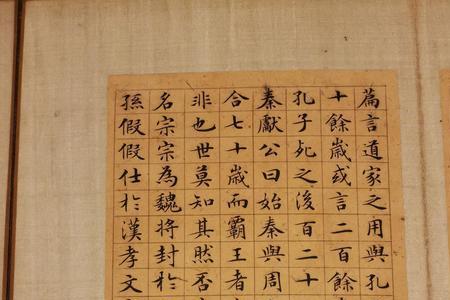 篇言道家之用與孔
十餘歲或言二百餘
孔子死之後百二十
秦獻公曰始秦與周
合七十歲而霸王者
非也世莫知其然否
名宗宗為魏將封於
孫假假仕於漢孝文